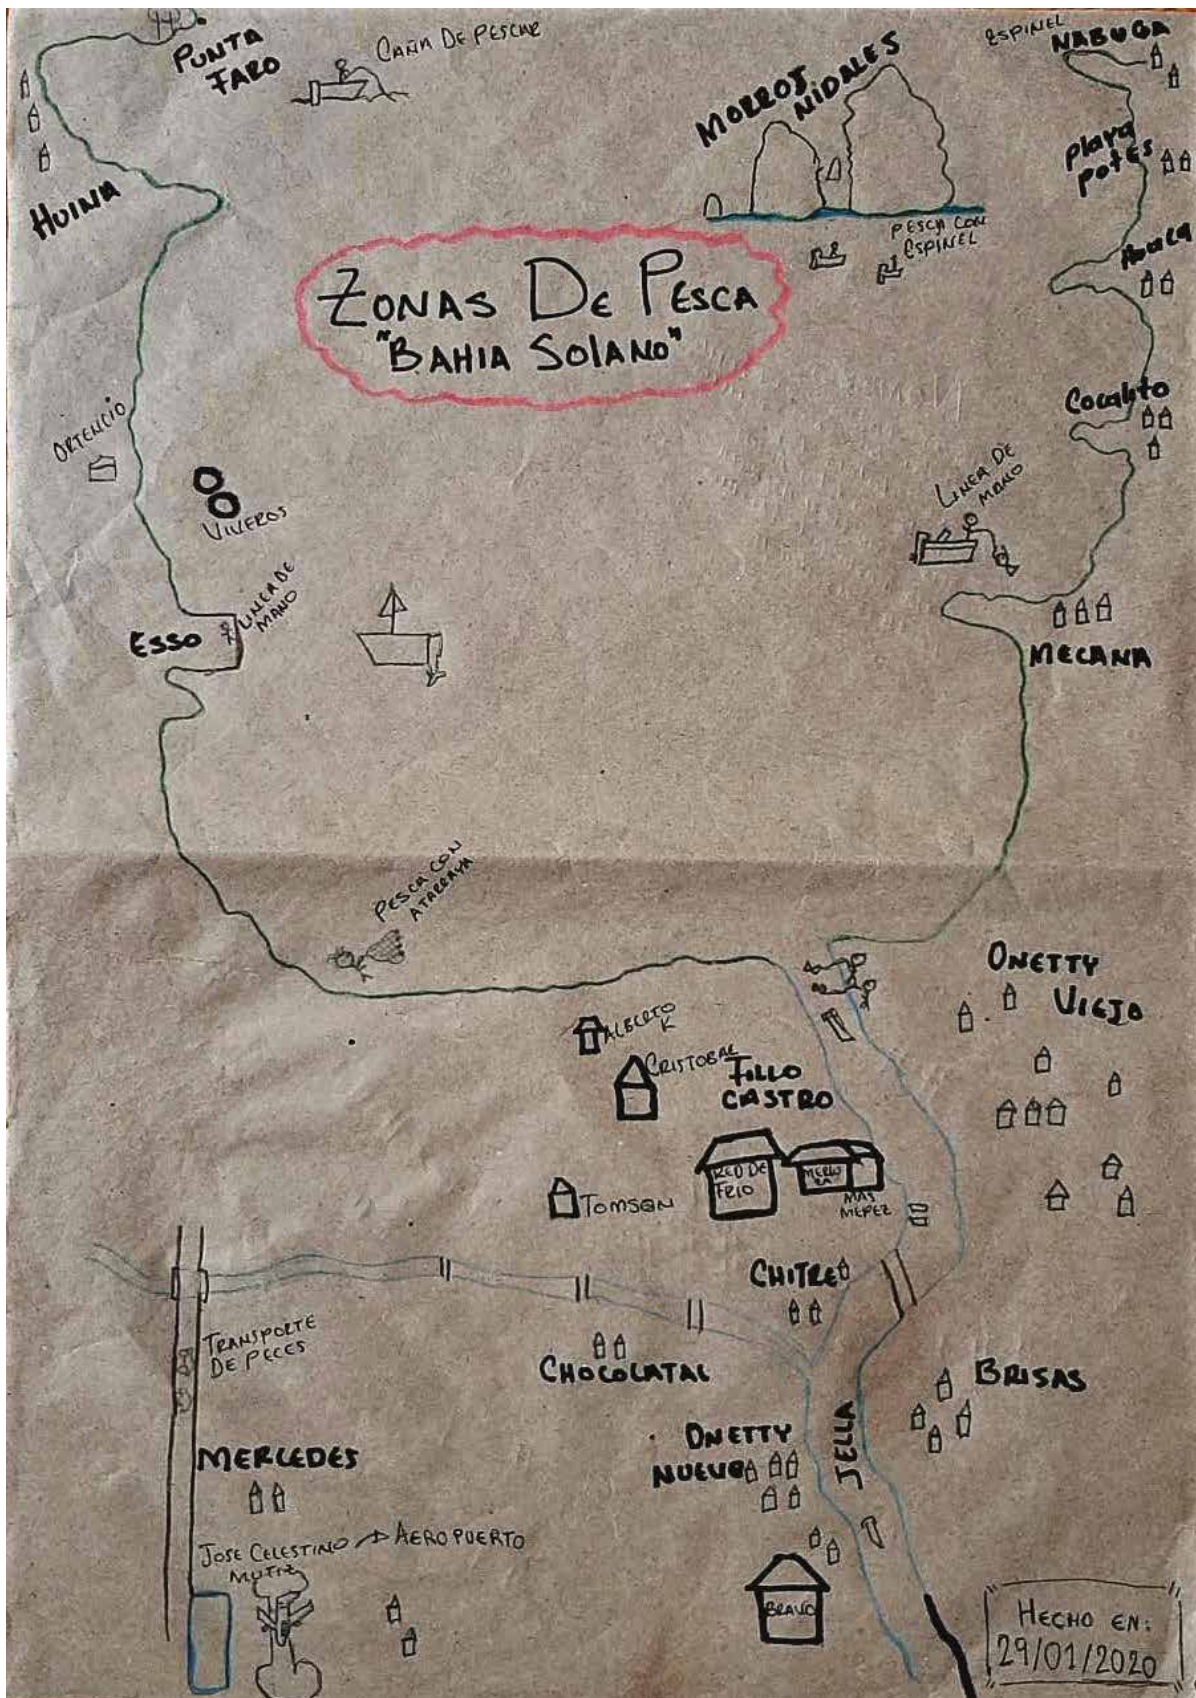 PUNTA
FARO
CAÑA DE PESCAR
ESPINEL
NABUGA
MORROS
NIDALES
Playa
potes
HUINA
PESCA CON
ESPINEL
ZONAS DE PESCA
"BAHIA SOLANO"
Cocalito
ORTENCIO
VIVEROS
LINEA DE
MANO
LINEA DE
MANO
ESSO
MECANA
PESCA CON
ATARRAYA
ONETTY
VIEJO
ALBERTO
K
CRISTOBAL
FILLO
CASTRO
RED DE
FRIO
MAS
MEPEZ
TOMSON
CHITRE
TRANSPORTE
DE PECES
CHOCOLATAL
BRISAS
JELLA
MERCEDES
ONETTY
NUEVO
JOSE CELESTINO → AEROPUERTO
MUTIZ
BRAVO
HECHO EN:
29/01/2020